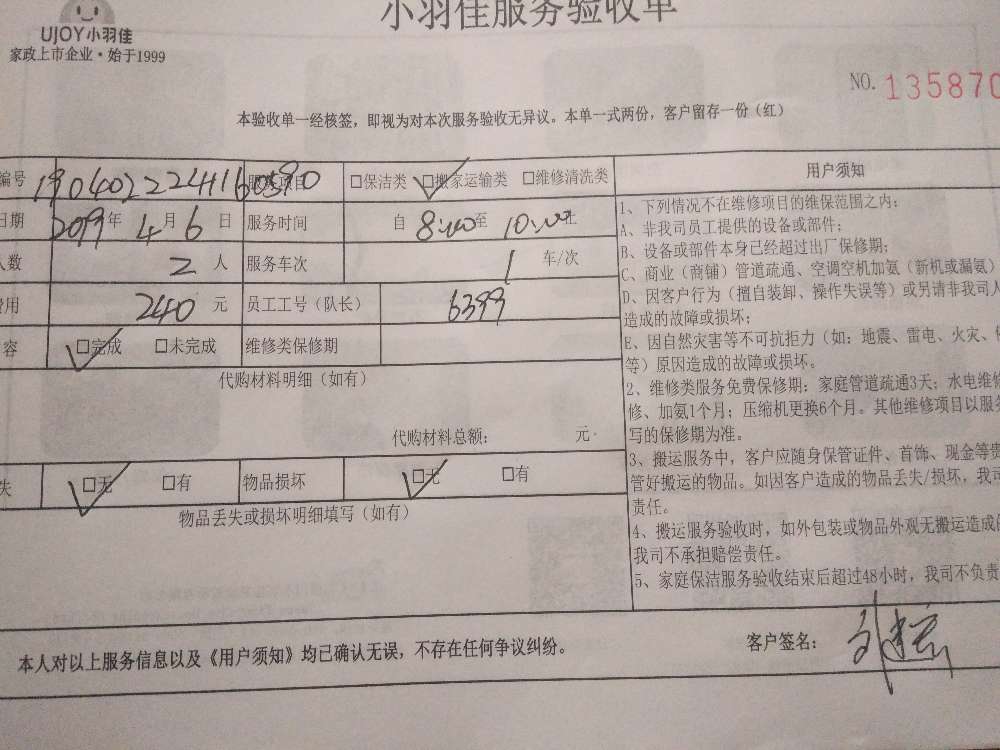 小羽佳服务验收单
UJOY小羽佳
家政上市企业·始于1999
NO. 135870
本验收单一经核签，即视为对本次服务验收无异议。本单一式两份，客户留存一份（红）
编号 服务项目 □保洁类 □搬家运输类 □维修清洗类
日期 2019年 4月 6日 服务时间 自 8:00至 10:00止
人数 2人 服务车次 1 车/次
费用 240元 员工工号（队长） 6399
容 □完成 □未完成 维修类保修期
代购材料明细（如有）
代购材料总额： 元
失 □无 □有 物品损坏 □无 □有
物品丢失或损坏明细填写（如有）
用户须知
1、下列情况不在维修项目的维保范围之内：
A、非我司员工提供的设备或部件；
B、设备或部件本身已经超过出厂保修期；
C、商业（商铺）管道疏通、空调空机加氨（新机或漏氨）
D、因客户行为（擅自装卸、操作失误等）或另请非我司人
造成的故障或损坏；
E、因自然灾害等不可抗拒力（如：地震、雷电、火灾、
等）原因造成的故障或损坏。
2、维修类服务免费保修期：家庭管道疏通3天；水电维修
修、加氨1个月；压缩机更换6个月。其他维修项目以服务
写的保修期为准。
3、搬运服务中，客户应随身保管证件、首饰、现金等贵
管好搬运的物品。如因客户造成的物品丢失/损坏，我司
责任。
4、搬运服务验收时，如外包装或物品外观无搬运造成的
我司不承担赔偿责任。
5、家庭保洁服务验收结束后超过48小时，我司不负责
本人对以上服务信息以及《用户须知》均已确认无误，不存在任何争议纠纷。
客户签名：